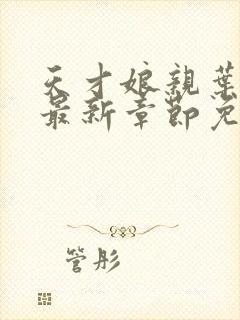 天才娘親葉
最新章節免
管彤